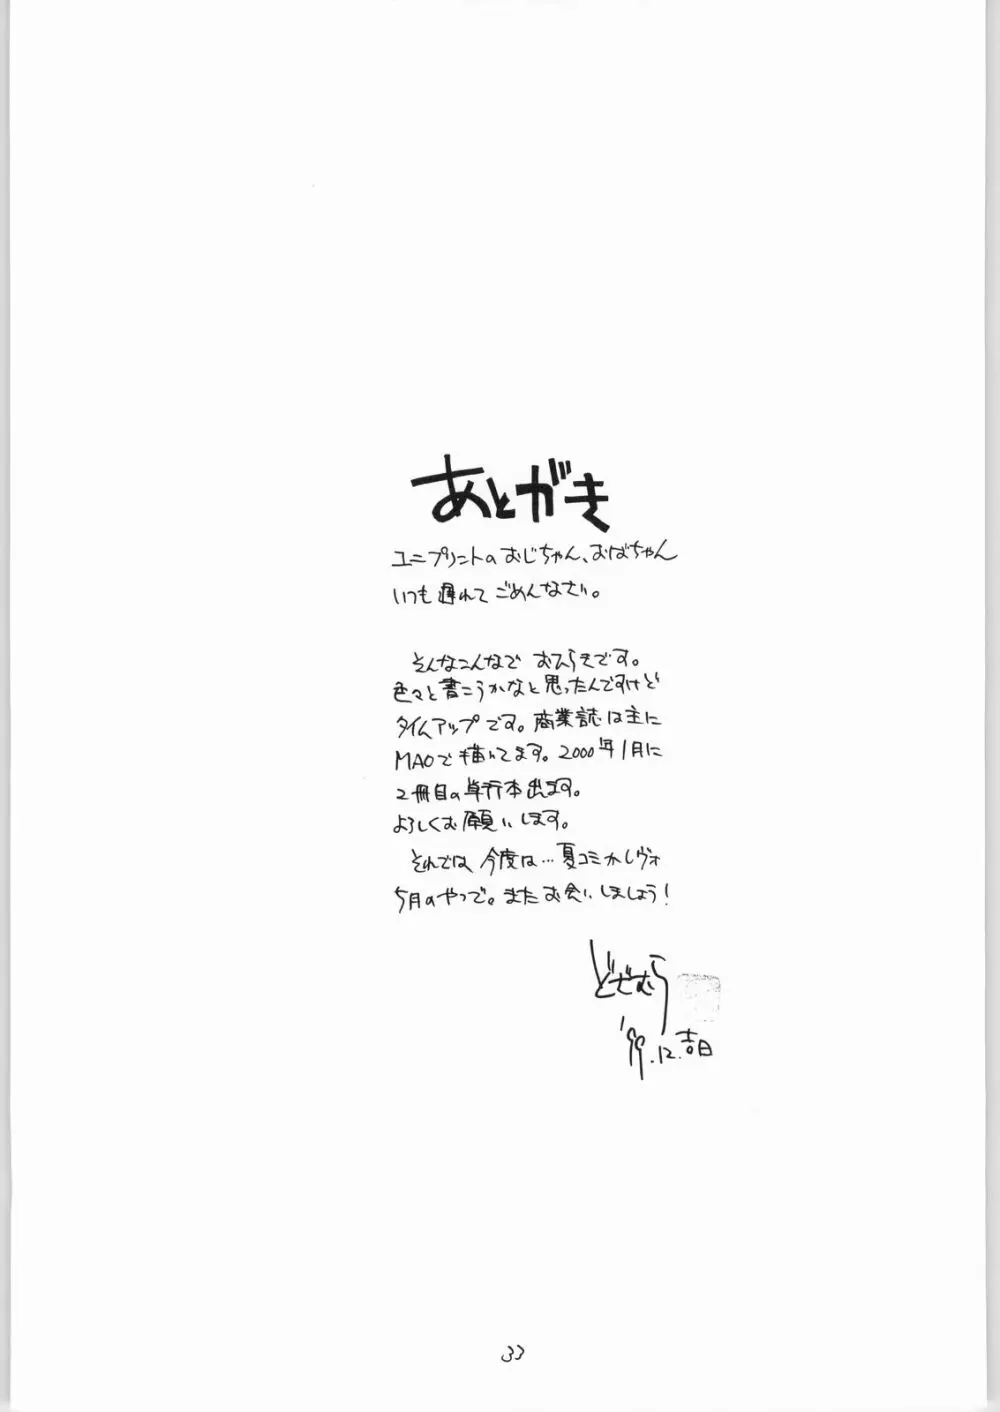 あとがき
ユニプリントのおじちゃん、おばちゃん
いつも遅れてごめんなさい。
そんなこんなで おひらきです。
色々と書こうかなと思ったんですけど
タイムアップです。商業誌は主に
MAOで描いてます。2000年1月に
2冊目の単行本出ます。
よろしくお願いします。
それでは 今度は…夏コミかレヴォ
5月のやつで。またお会いしましょう!
どざむら
'99.12.吉日
33